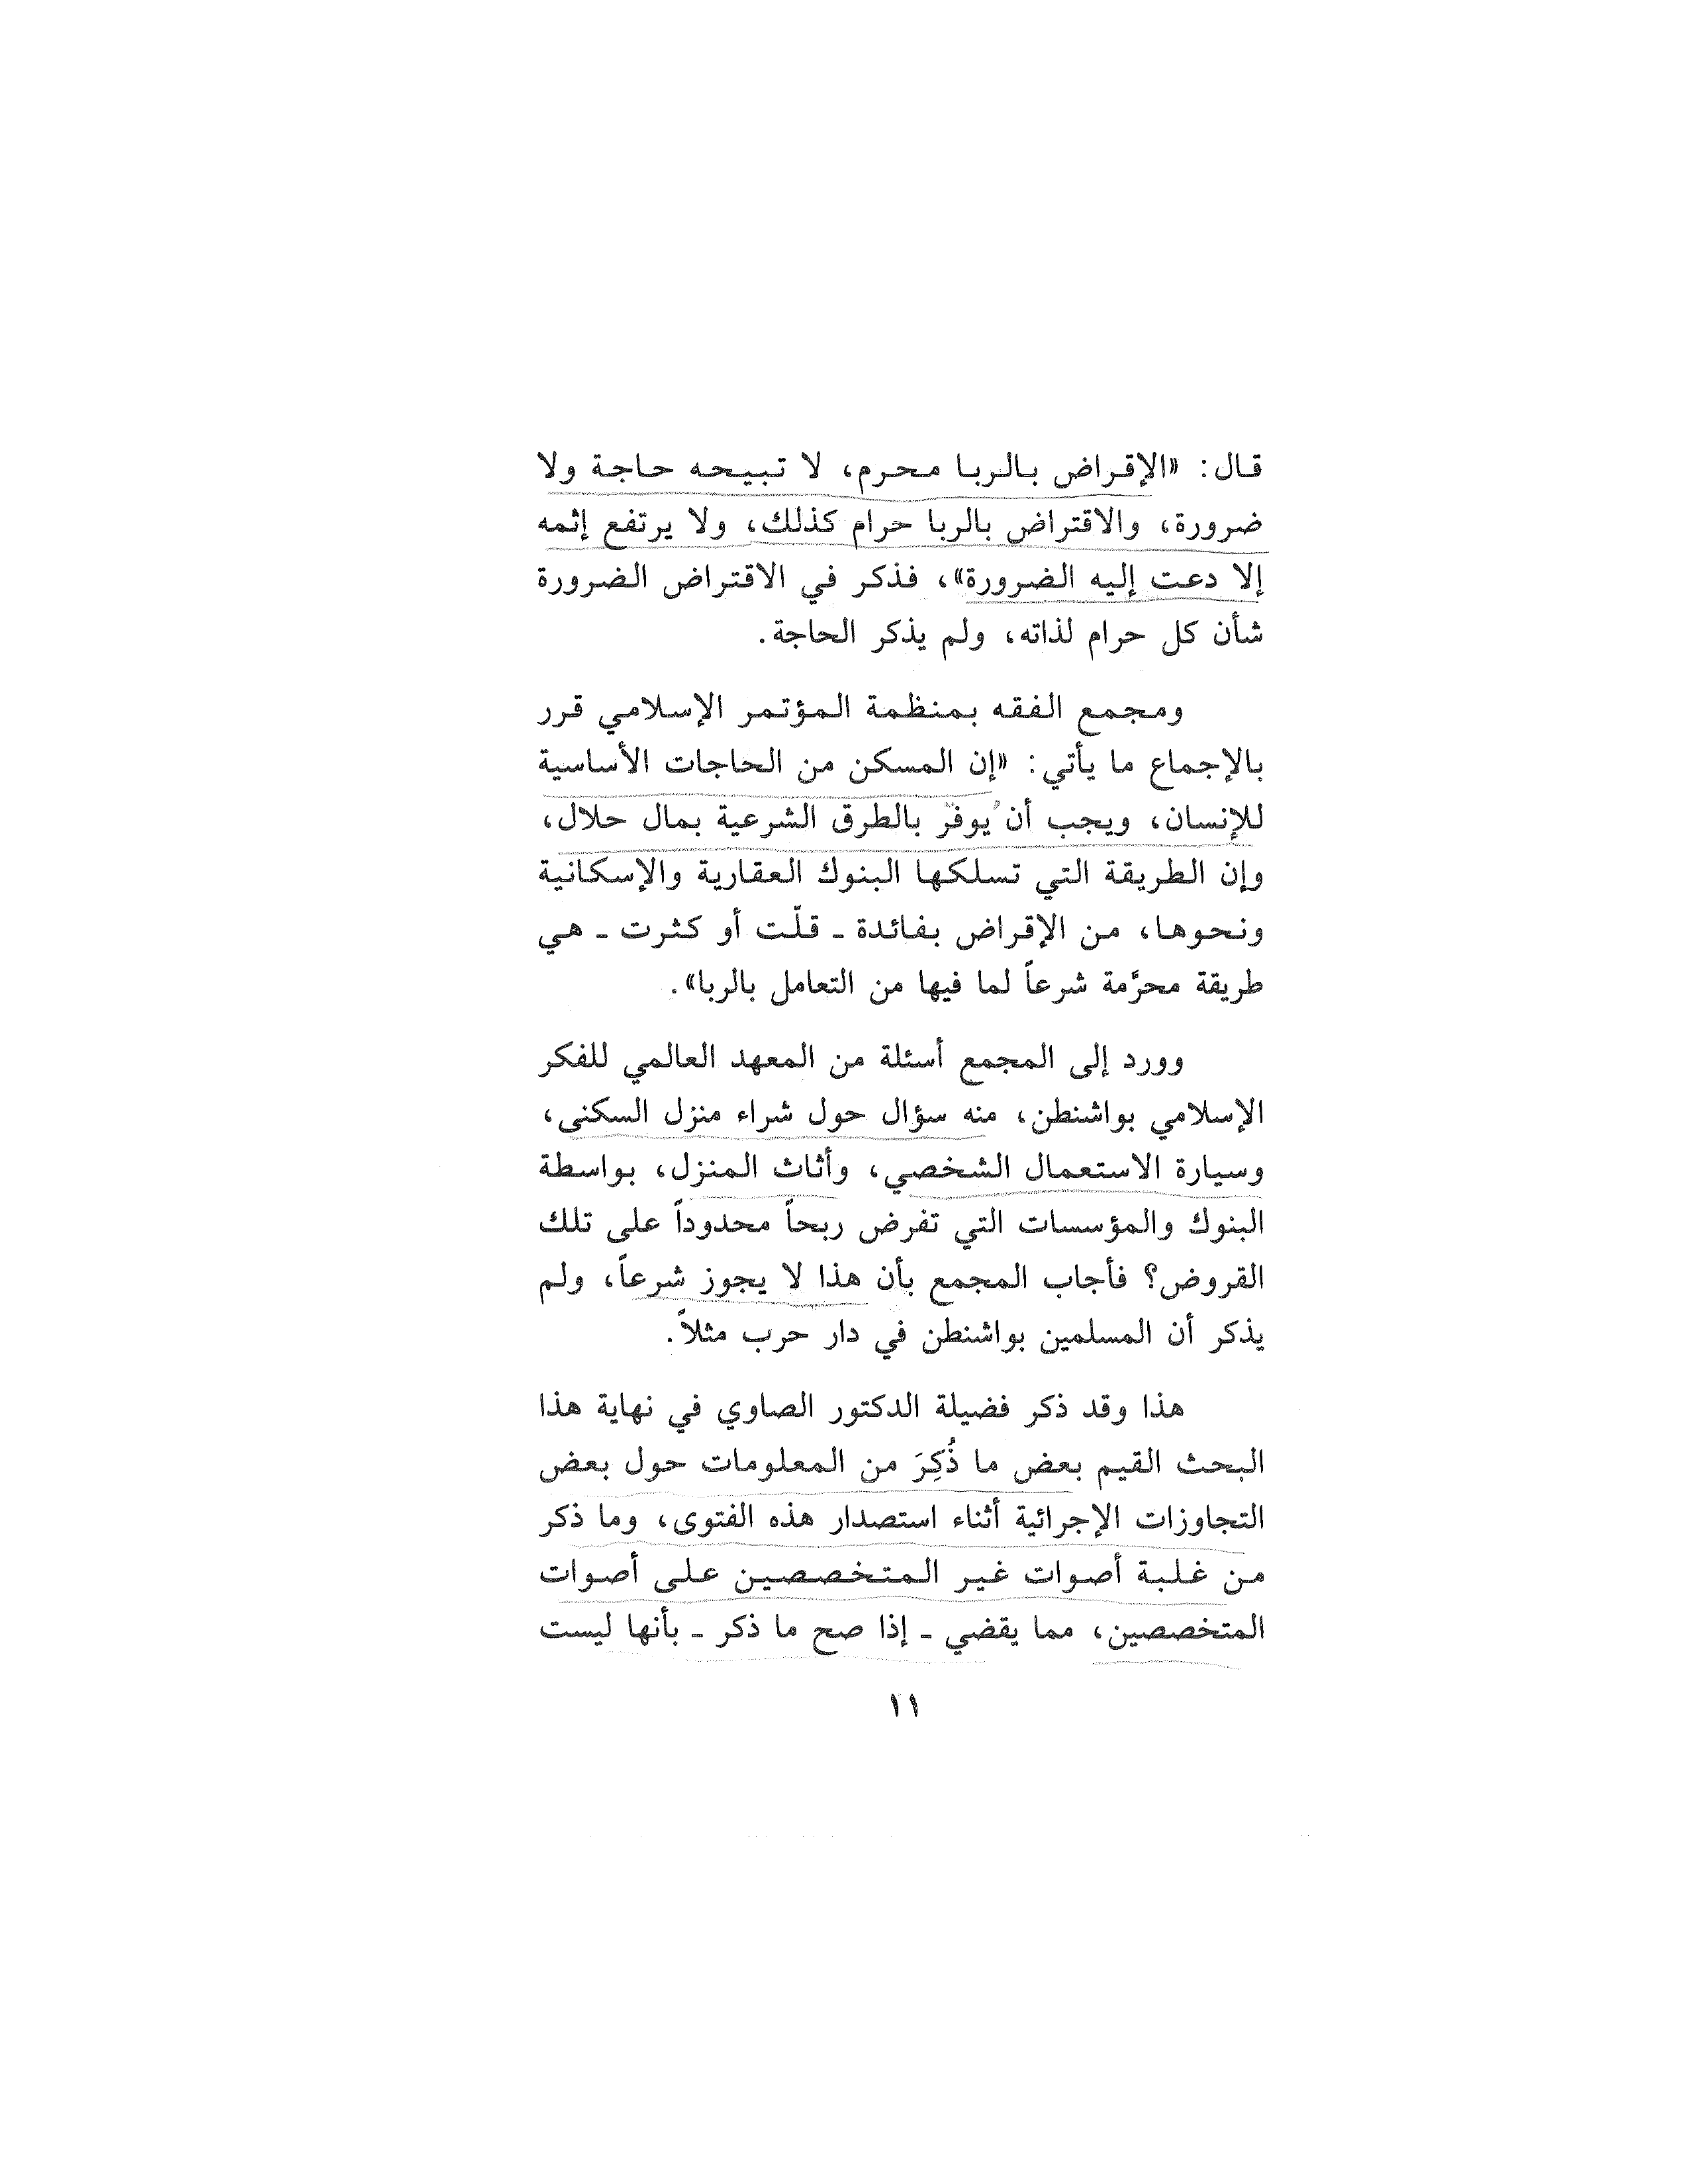 قال: «الإقراض بالربا محرم، لا تبيحه حاجة ولا
ضرورة، والاقتراض بالربا حرام كذلك، ولا يرتفع إثمه
إلا دعت إليه الضرورة»، فذكر في الاقتراض الضرورة
شأن كل حرام لذاته، ولم يذكر الحاجة.
ومجمع الفقه بمنظمة المؤتمر الإسلامي قرر
بالإجماع ما يأتي: «إن المسكن من الحاجات الأساسية
للإنسان، ويجب أن يوفّر بالطرق الشرعية بمال حلال،
وإن الطريقة التي تسلكها البنوك العقارية والإسكانية
ونحوها، من الإقراض بفائدة ـ قلّت أو كثرت ـ هي
طريقة محرَّمة شرعاً لما فيها من التعامل بالربا».
وورد إلى المجمع أسئلة من المعهد العالمي للفكر
الإسلامي بواشنطن، منه سؤال حول شراء منزل السكنى،
وسيارة الاستعمال الشخصي، وأثاث المنزل، بواسطة
البنوك والمؤسسات التي تفرض ربحاً محدوداً على تلك
القروض؟ فأجاب المجمع بأن هذا لا يجوز شرعاً، ولم
يذكر أن المسلمين بواشنطن في دار حرب مثلاً.
هذا وقد ذكر فضيلة الدكتور الصاوي في نهاية هذا
البحث القيم بعض ما ذُكِرَ من المعلومات حول بعض
التجاوزات الإجرائية أثناء استصدار هذه الفتوى، وما ذكر
من غلبة أصوات غير المتخصصين على أصوات
المتخصصين، مما يقضي ـ إذا صح ما ذكر ـ بأنها ليست
١١